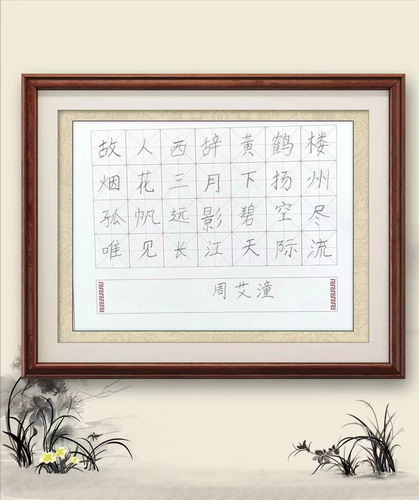 故人西辞黄鹤楼
烟花三月下扬州
孤帆远影碧空尽
唯见长江天际流
周艾潼